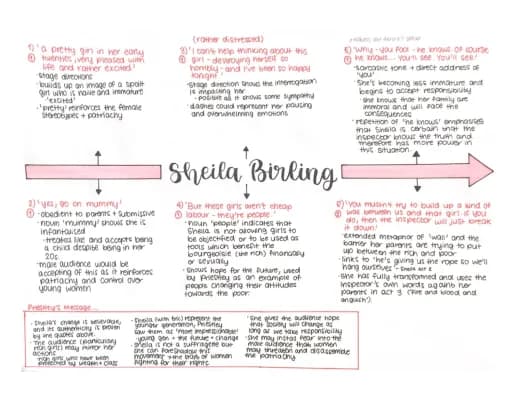 1) 'a pretty girl in her early
① twenties, very pleased with
life and rather excited'
- stage directions
- builds up an image of a spoilt
girl who is naive and immature
- 'excited'
- 'pretty' reinforces the female
stereotypes + patriachy
(rather distressed)
3) 'I can't help thinking about this
① girl - destroying herself so
horribly - and I've been so happy
tonight.'
- stage direction shows the interrogation
is impacting her
- positive as it shows some sympathy
- dashes could represent her pausing
and overwhelming emotions
5) 'Why - you fool - he knows. Of course
he knows... You'll see. You'll see!'
- sarcastic tone + direct address of
'you'
- She's becoming less immature and
begins to accept responsibility
- she knows that her family are
immoral and will face the
consequences
- repetition of 'he knows' emphasises
that Sheila is certain that the
inspector knows the truth and
therefore has more power in
this situation.
Sheila Birling
2) 'yes, go on mummy'
① - obedient to parents + submissive
- noun 'mummy' shows she is
infantalised
- treated like and accepts being
a child despite being in her
20s.
- male audience would be
accepting of this as it reinforces
patriachy and control over
young women
4) 'But these girls aren't cheap
① labour - they're people.'
- noun 'people' indicates that
Sheila is not allowing girls to
be objectified or to be used as
tools which benefit the
bourgeoisie (the rich) financially
or sexually
- Shows hope for the future, used
by Priestley as an example of
people changing their attitudes
towards the poor.
6) 'You mustn't try to build up a kind of
wall between us and that girl. If you
do, then the inspector will just break
it down.'
- extended metaphor of 'wall' and the
barrier her parents are trying to put
up between the rich and poor
- links to 'he's giving us the rope so we'll
hang ourselves' -
- She has fully transformed and uses the
inspector's own words against her
parents in act 3 (fire and blood and
anguish).
Priestley's Message...
- Sheila's change is believable,
and its authenticity is proven
by the quotes above.
- The audience (particularly
rich girls) may mirror her
actions
- rich girls who have been
protected by wealth + class
- Sheila (with Eric) represent the
younger generation, Priestley
saw them as 'more impressionable'
- young gen = the future + change
- Sheila is not a suffragette but
she can foreshadow this
movement + the topic of women
fighting for their rights.
- She gives the audience hope
that society will change as
long as we take responsibility
- She may instil fear into the
male audience that women
may threaten and disassemble
the patriachy